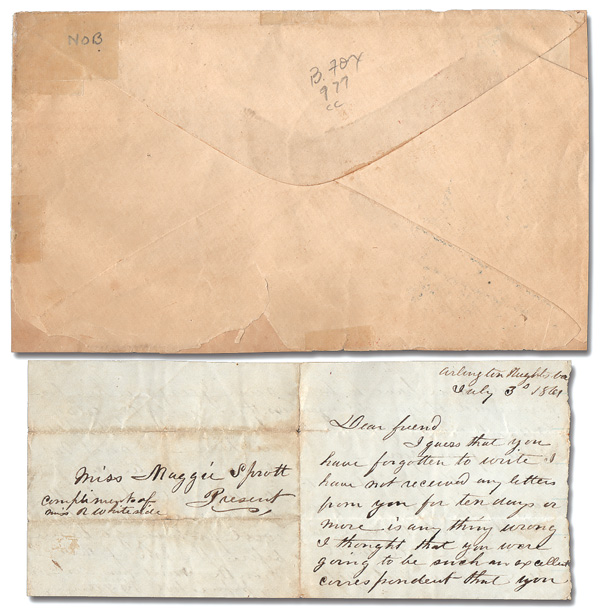 NOB
B. 704
977
cc
Arlington Hughts Va
July 3d 1861
Dear friend
I guess that you
have forgotten to write I
have not received any letters
from you for ten days or
more is any thing wrong
I thought that you were
going to be such an excellent
correspondent that you
Miss Maggie Sprott
compliments of Present
miss R Whiteside